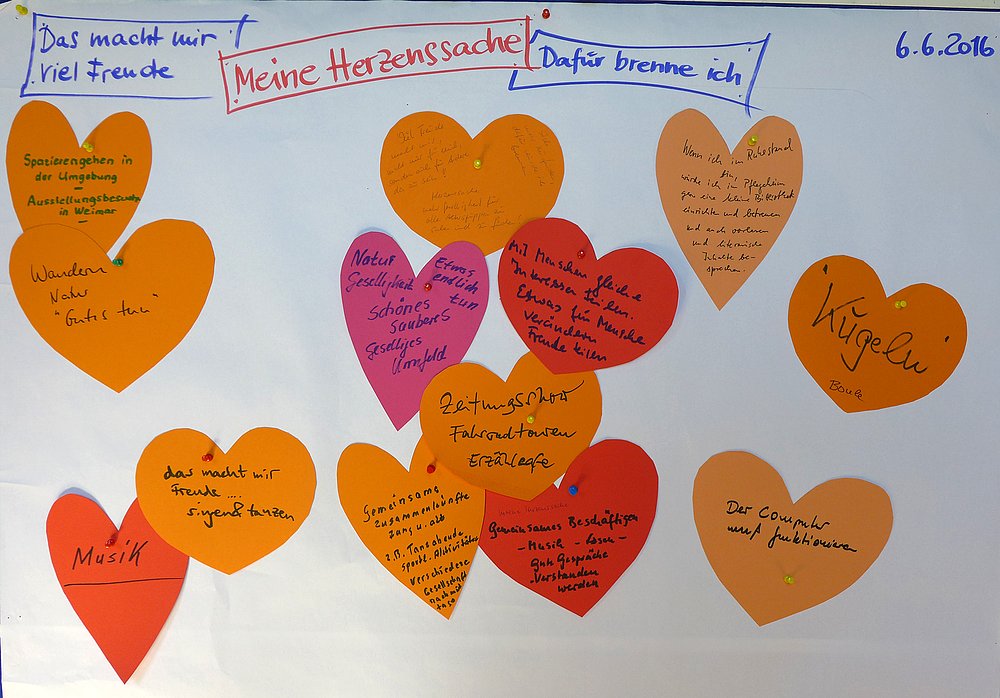 Das macht mir
viel Freude
Meine Herzenssache
Dafür brenne ich
6.6.2016
Spazierengehen in
der Umgebung
–
Ausstellungsbesuche
in Weimar
–
Wandern
Natur
"Gutes tun"
Musik
das macht mir
Freude ....
singen & tanzen
Viel Freude
macht mir
Herzenssache
Natur
Geselligkeit
Etwas
endlich
tun
Schönes
sauberes
geselliges
Umfeld
Mit Menschen gleiche
Interessen teilen.
Etwas für Mensche
verändern
Freude teilen
Zeitungsshow
Fahrradtouren
Erzählcafe
Gemeinsame
Zusammenkünfte
Jung u. alt
z.B. Tanzabende
sportl. Aktivitäten
Verschiedene
Gesellschaft
nachmit
tage
meine Herzenssache
Gemeinsames Beschäftigen
- Musik - Lesen -
gute Gespräche
- Verstanden
werden
Wenn ich im Ruhestand
bin,
würde ich im Pflegeheim
gern eine kleine Bibliothek
einrichten und betreuen
und auch vorlesen
und literarische
Inhalte be-
sprechen.
"Kugeln"
Boule
Der Computer
muß funktionieren